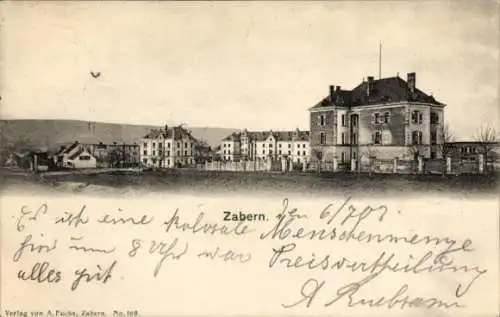 Zabern. den 6/7 07.
Es ist eine kolosale Menschenmenge
hier um 8 Uhr war Preisvertheilung
alles gut
Verlag von A. Fuchs, Zabern. No. 108.